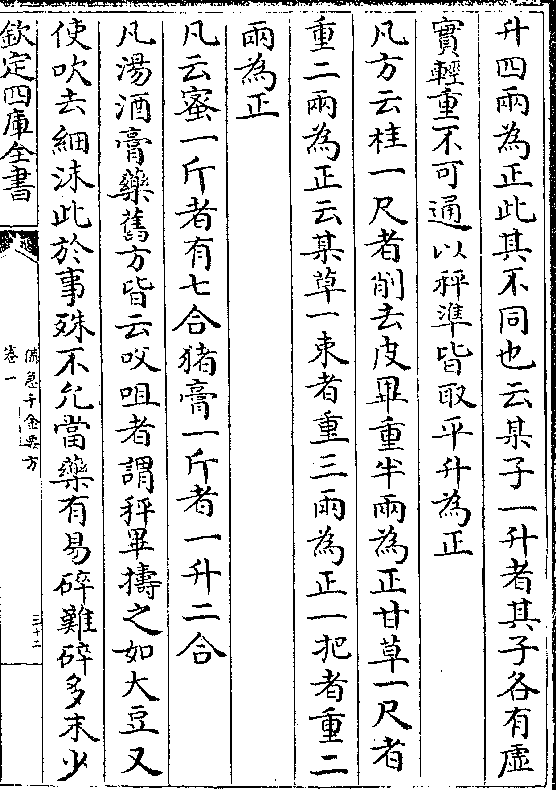 升四兩為正此其不同也云某子一升者其子各有虛
實輕重不可通以秤準皆取平升為正
凡方云桂一尺者削去皮畢重半兩為正甘草一尺者
重二兩為正云某草一束者重三兩為正一把者重二
兩為正
凡云蜜一斤者有七合猪膏一斤者一升二合
凡湯酒膏藥舊方皆云㕮咀者謂秤畢擣之如大豆又
使吹去細沫此於事殊不允當藥有易碎難碎多末少
欽定四庫全書
備急千金要方
卷一
三十二